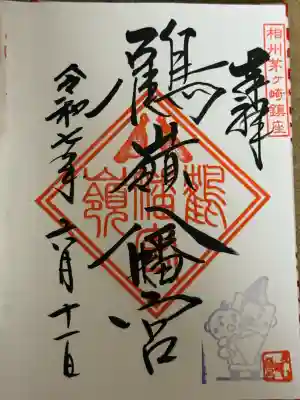 相州茅ヶ崎鎮座
奉拝
鶴嶺八幡宮
令和七年六月十一日